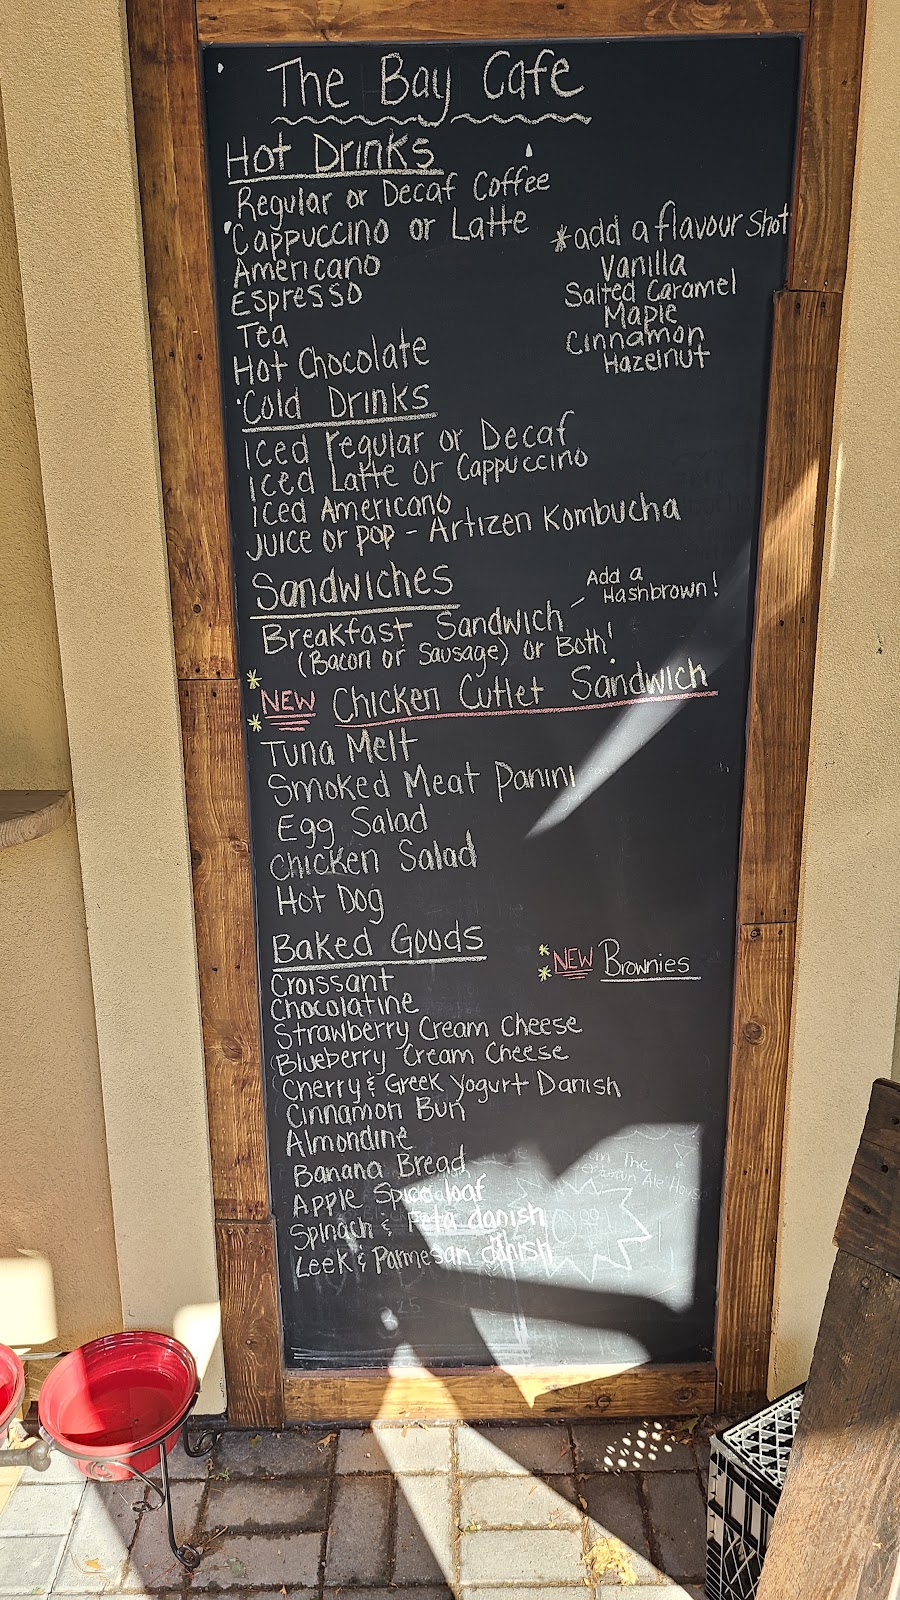 The Bay Cafe
Hot Drinks
Regular or Decaf Coffee
Cappuccino or Latte
Americano
Espresso
Tea
Hot Chocolate
*add a flavour shot
Vanilla
Salted Caramel
Maple
Cinnamon
Hazelnut
Cold Drinks
Iced regular or Decaf
Iced Latte or Cappuccino
Iced Americano
Juice or pop - Artizen Kombucha
Sandwiches
Breakfast Sandwich - Add a
Hashbrown!
(Bacon or Sausage) or Both!
* NEW Chicken Cutlet Sandwich
*
Tuna Melt
Smoked Meat Panini
Egg Salad
Chicken Salad
Hot Dog
Baked Goods
* NEW Brownies
*
Croissant
Chocolatine
Strawberry Cream Cheese
Blueberry Cream Cheese
Cherry & Greek Yogurt Danish
Cinnamon Bun
Almondine
Banana Bread
Apple Spice loaf
Spinach & Feta danish
Leek & Parmesan danish
The
Ale House